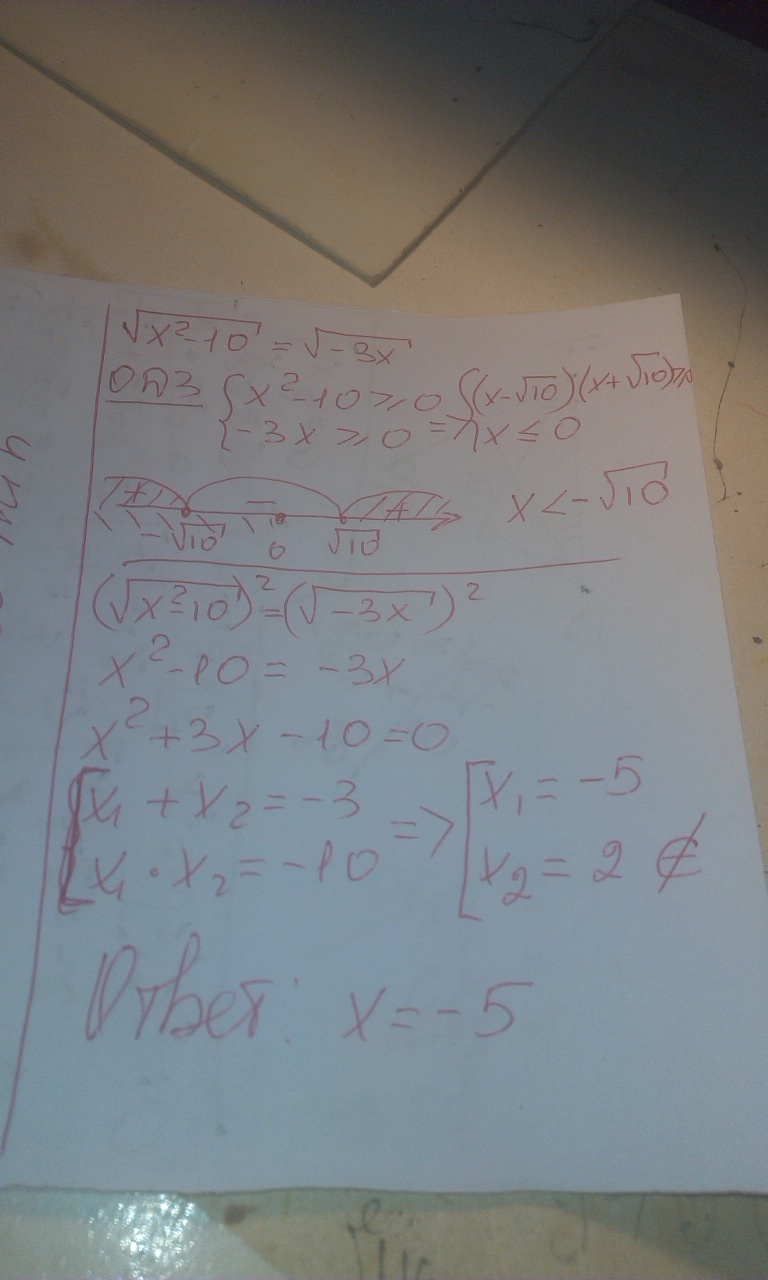 √(x²-10) = √(-3x)
ОДЗ { x²-10 ⩾ 0 { (x-√10)(x+√10)⩾0
{ -3x ⩾ 0 => { x ≤ 0
+ - +
-√10 0 √10 x < -√10
(√(x²-10))² = (√(-3x))²
x²-10 = -3x
x²+3x-10=0
[ x₁ + x₂ = -3 => [ x₁ = -5
[ x₁ · x₂ = -10 [ x₂ = 2 ∉
Ответ: x = -5